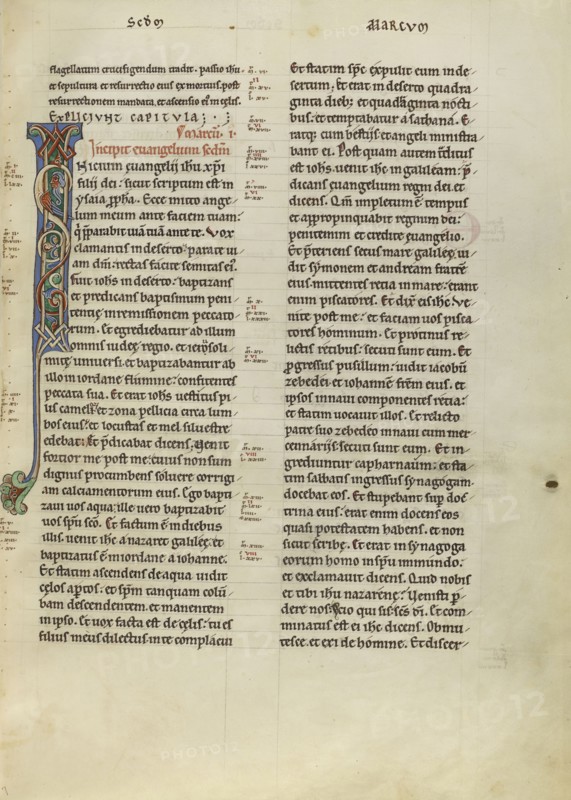 Scdm
Marcum
flagellatum crucifigendum tradit. passio ihu
et sepultura et resurrectio eius ex mortuis. post
resurrectionem mandata. et ascensio ei' in celis.
Expliciunt capitula;
Marcu . i .
Incipit euangelium scdm
INicium euangelij ihu xpi
filii dei: sicut scriptum est in
ysaia ppha. Ecce mitto ange
lum meum ante faciem tuam:
q pparabit uia tua ante te. Vox
clamantis in deserto: parate ui
am dni: rectas facite semitas ei'.
Fuit iohs in deserto baptizans
et predicans baptismum peni
tentie in remissionem peccato
rum. Et egrediebatur ad illum
omnis iudee regio. et ierosoli
mite uniuersi. et baptizabantur ab
illo in iordane flumine: confitentes
peccata sua. Et erat iohs uestitus pi
lis cameli et zona pellicia circa lum
bos eius: et locustas et mel siluestre
edebat. Et pdicabat dicens. Uenit
fortior me post me: cuius non sum
dignus procumbens soluere corrigi
am calciamentorum eius. Ego bapti
zaui uos aqua: ille uero baptizabit
uos spu sco. Et factum e in diebus
illis. uenit ihc a nazaret galilee. et
baptizatus e in iordane a iohanne.
Et statim ascendens de aqua uidit
celos aptos: et spm tanquam colu
bam descendentem. et manentem
in ipso. Et uox facta est de celis: tu es
filius meus dilectus: in te complacui
Et statim spc expulit eum in de
sertum. Et erat in deserto quadra
ginta dieb: et quadraginta nocti
bus: et temptabatur a sathana. E
ratq: cum bestijs et angeli ministra
bant ei. Post quam autem traditus
est iohs. uenit ihc in galileam: p
dicans euangelium regni dei. et
dicens. Qm impletum e tempus
et appropinquabit regnum dei:
penitemini et credite euangelio.
Et pteriens secus mare galilee. ui
dit symonem et andream fratre
eius. mittentes retia in mare: erant
enim piscatores. Et dixit eis ihc Ve
nite post me: et faciam uos pisca
tores hominum. Et protinus re
lictis retibus: secuti sunt eum. Et
pgressus pusillum: uidit iacobu
zebedei et iohanne frem eius. et
ipsos in naui componentes retia:
et statim uocauit illos. Et relicto
patre suo zebedeo in naui cum mer
cennarijs: secuti sunt eum. Et in
grediuntur capharnaum: et sta
tim sabbatis ingressus synagogam
docebat eos. Et stupebant sup doc
trina eius: erat enim docens eos
quasi potestatem habens. et non
sicut scribe. Et erat in synagoga
eorum homo in spu immundo:
et exclamauit dicens. Quid nobis
et tibi ihu nazarene? Uenisti p
dere nos? scio qui sis: scs di. Et com
minatus est ei ihc dicens. Obmu
tesce. et exi de homine. Et discer